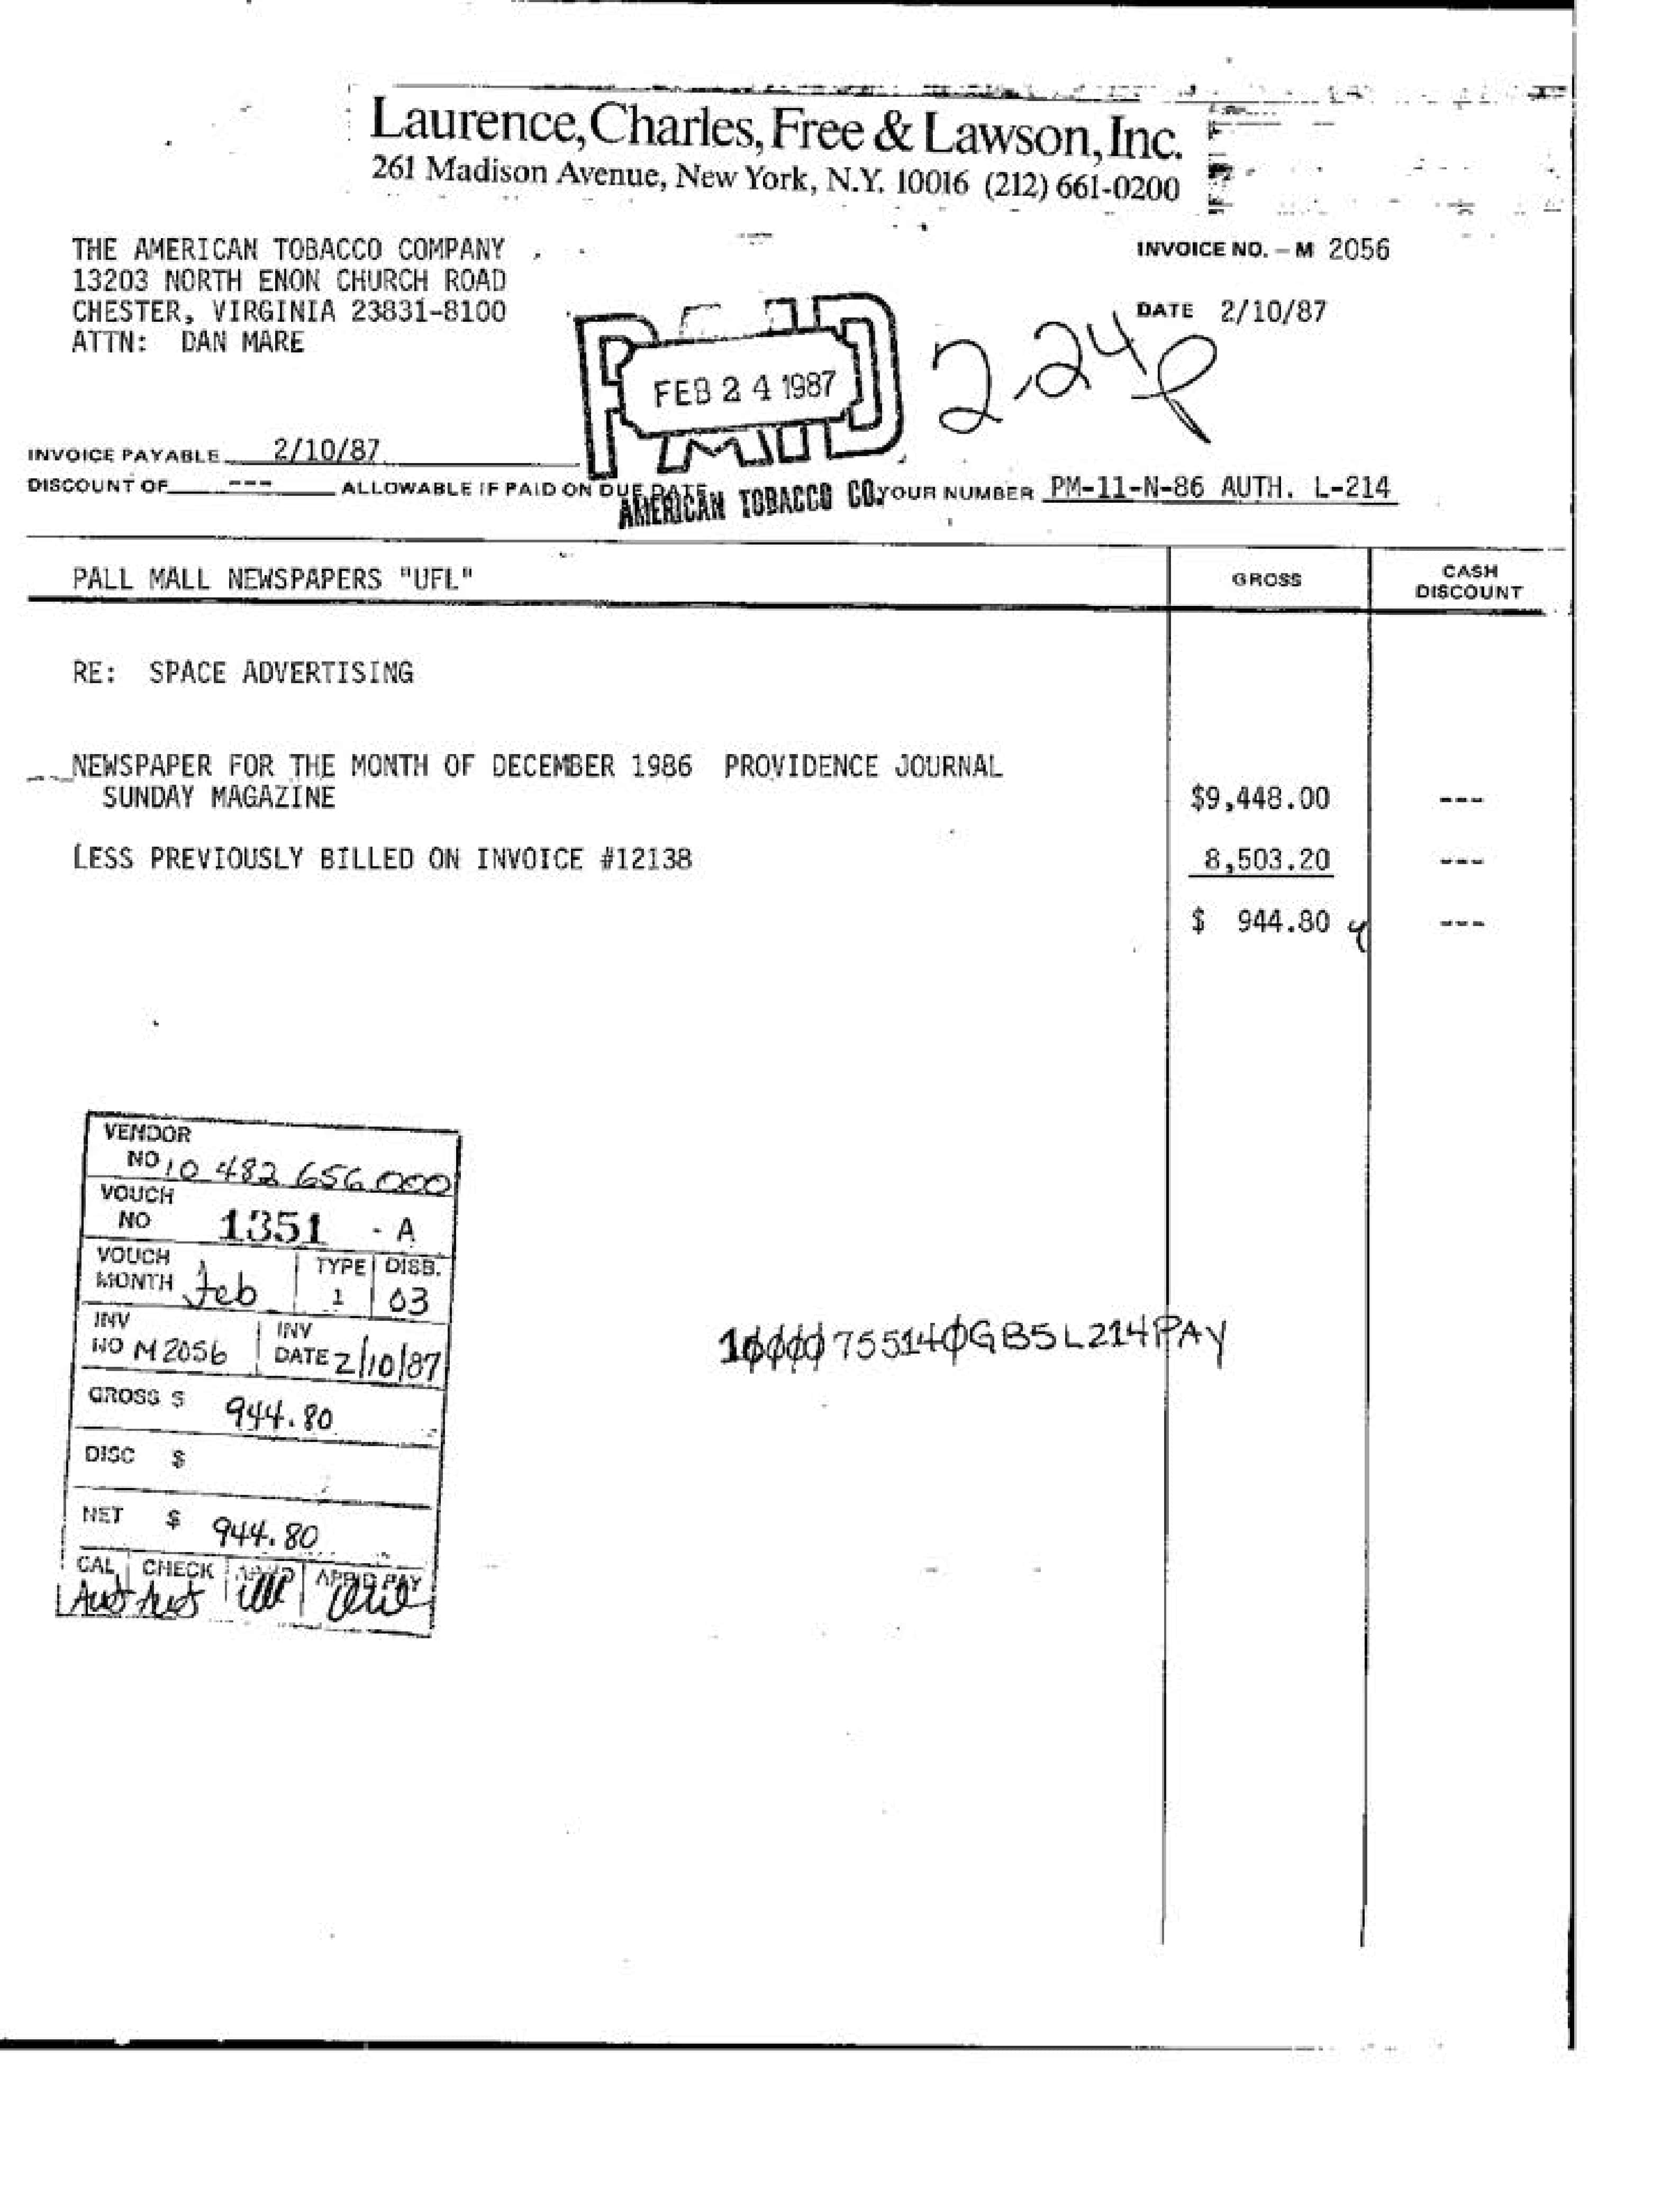 Laurence, Charles, Free & Lawson, Inc.
261 Madison Avenue, New York, N.Y. 10016 (212) 661-0200
THE AMERICAN TOBACCO COMPANY
13203 NORTH ENON CHURCH ROAD
CHESTER, VIRGINIA 23831-8100
ATTN: DAN MARE
INVOICE NO. - M 2056
DATE 2/10/87
PAID
FEB 24 1987
AMERICAN TOBACCO CO.
2.24
INVOICE PAYABLE 2/10/87
DISCOUNT OF --- ALLOWABLE IF PAID ON DUE DATE
YOUR NUMBER PM-11-N-86 AUTH. L-214
PALL MALL NEWSPAPERS "UFL" GROSS CASH DISCOUNT
RE: SPACE ADVERTISING
NEWSPAPER FOR THE MONTH OF DECEMBER 1986 PROVIDENCE JOURNAL
SUNDAY MAGAZINE $9,448.00 ---
LESS PREVIOUSLY BILLED ON INVOICE #12138 8,503.20 ---
$ 944.80 ---
VENDOR
NO 10 482 656 000
VOUCH
NO 1351 - A
VOUCH MONTH Feb TYPE 1 DISB. 03
INV NO M2056 INV DATE 2/10/87
GROSS $ 944.80
DISC $
NET $ 944.80
CAL CHECK APP'D PAY
10000755140GB5L214PAY